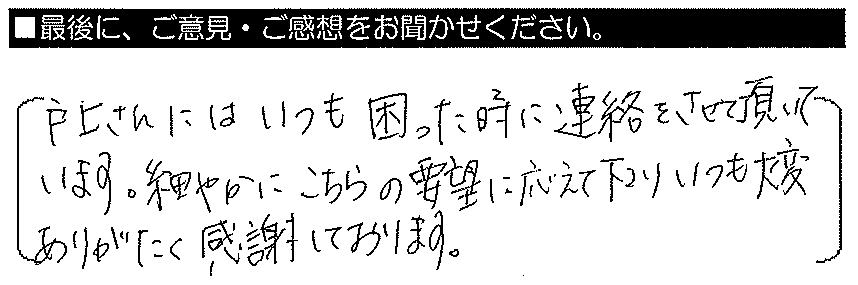 ■最後に、ご意見・ご感想をお聞かせください。
戸上さんにはいつも困った時に連絡をさせて頂いて
います。細やかにこちらの要望に応えて下さりいつも大変
ありがたく感謝しております。